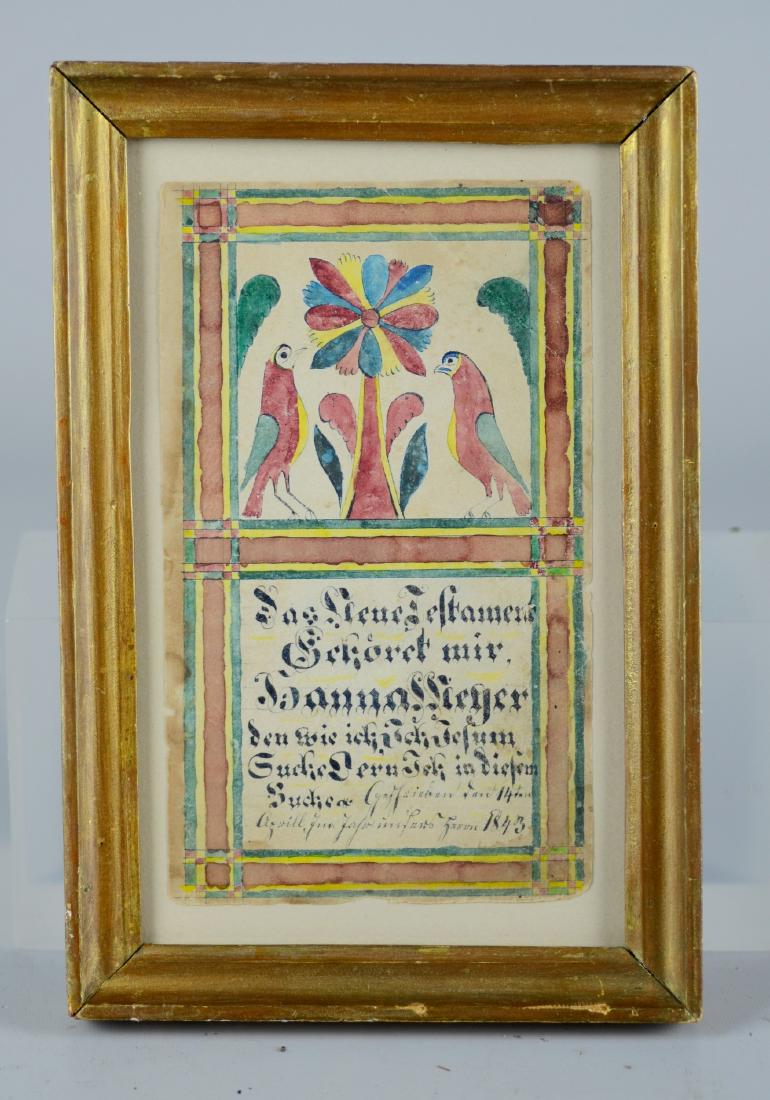 Das Neue Testament
Gehöret mir,
Hanna Meyer
den wie ich Ich Jesum
Suche Lern Ich in diesem
Buche Geschrieben den 14ten
Aprill, Im Jahr unsers Herrn 1843